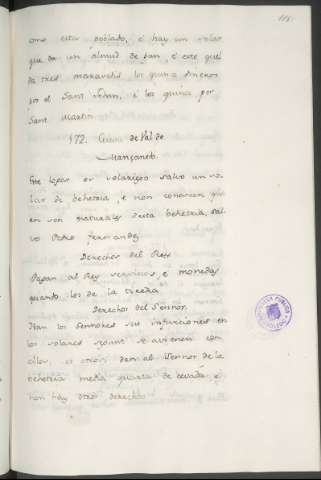 como esta poblado, é hay un solar
que da un almud de pan, é este que
da tres maravedis los quince dineros
por el Sant Johan, é los quince por
Sant Martin
172. Cueva de Val de
Manzanedo
Este logar es solariego salvo un so-
lar de behetria, é non conoscen que
en son naturales desta behetria, sal-
vo Pedro Fernandez
Derechos del Rey
Pagan al Rey servicios, é monedas
quando los de la tierra
Derechos del Sennor
Dan los Sennores sus infurciones en
los solares segunt se avienen con
ellos, dan al Sennor de la
behetria media quarta de cevada é
non hay otros derechos